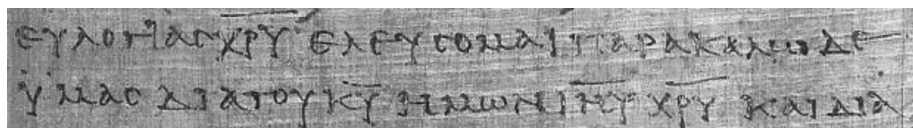 ευλογιασ χρυ ελευσομαι παρακαλω δε
υμασ δια του κυ ημων ιηυ χρυ και δια